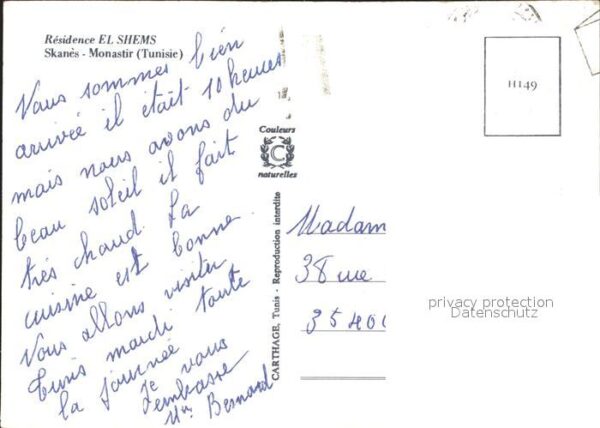 Résidence EL SHEMS
Skanès - Monastir (Tunisie)
Vous sommes bien
arrivée il était 10 heures
mais nous avons du
beau soleil il fait
très chaud. La
cuisine est bonne.
Vous allons visiter
Tunis mardi toute
la journée
Je vous
embrasse
Bernard
Couleurs
C
naturelles
CARTHAGE, Tunis - Reproduction interdite
H149
Madam
38 rue
35400
privacy protection
Datenschutz